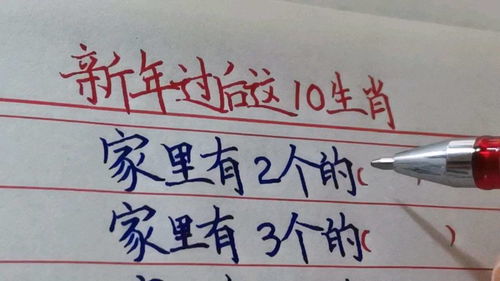 新年过后这10生肖
家里有2个的( )
家里有3个的( )